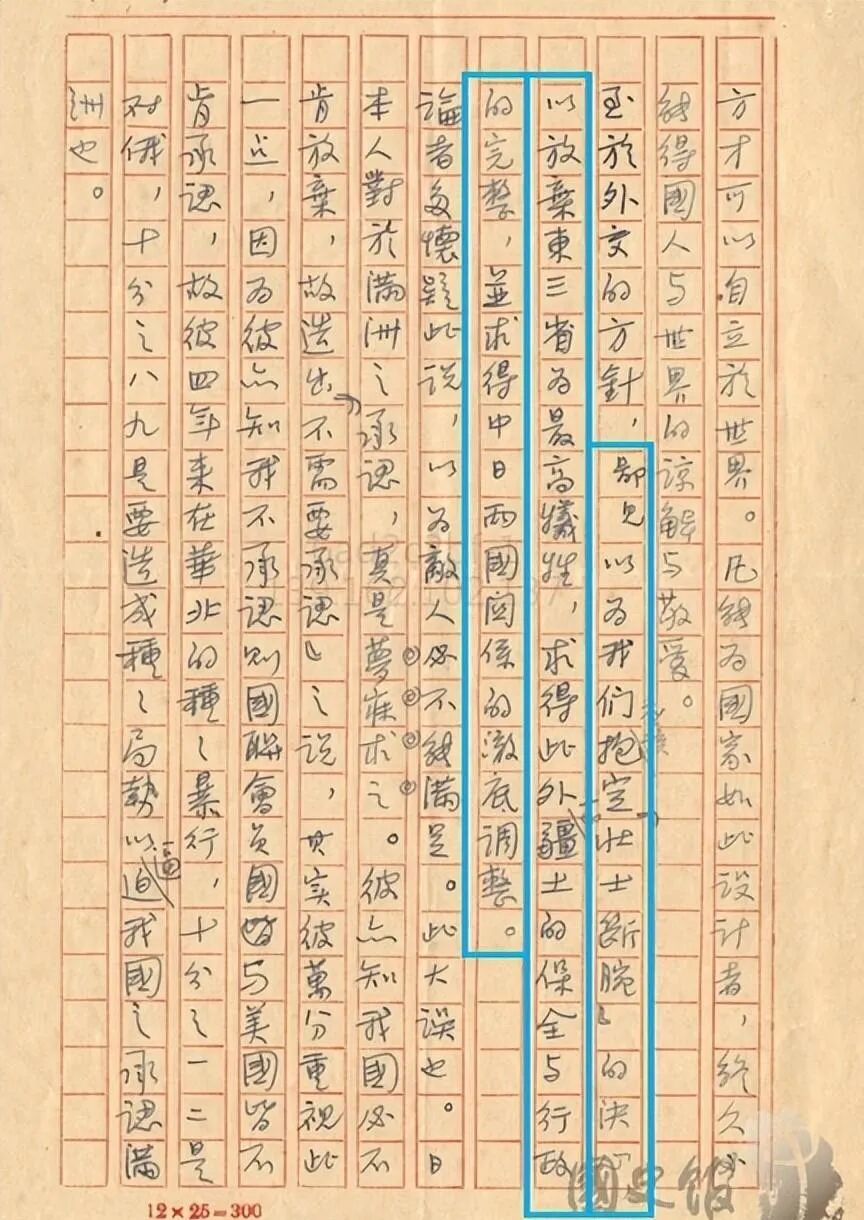 方才可以自立於世界。凡能為國家如此設計者，終久必
能得國人與世界的諒解与敬愛。
至於外交的方針，鄙見以為我们抱定壮士断腕」的決心
以放棄東三省為最高犧牲，求得此外疆土的保全与行政
的完整，並求得中日两國関係的澈底調整。
論者多懷疑此説，以為敵人必不能滿足。此大误也。日
本人對於滿洲之承認，真是夢寐求之。彼亦知我國必不
肯放棄，故造出「不需要承認」之说，其实彼萬分重視此
一点，因为彼亦知我不承認則國联會员國皆与美國皆不
肯承認，故彼四年来在華北的種〻暴行，十分之一二是
对俄，十分之八九是要造成種〻局勢以逼我國之承認滿
洲也。
12×25=300
國史館